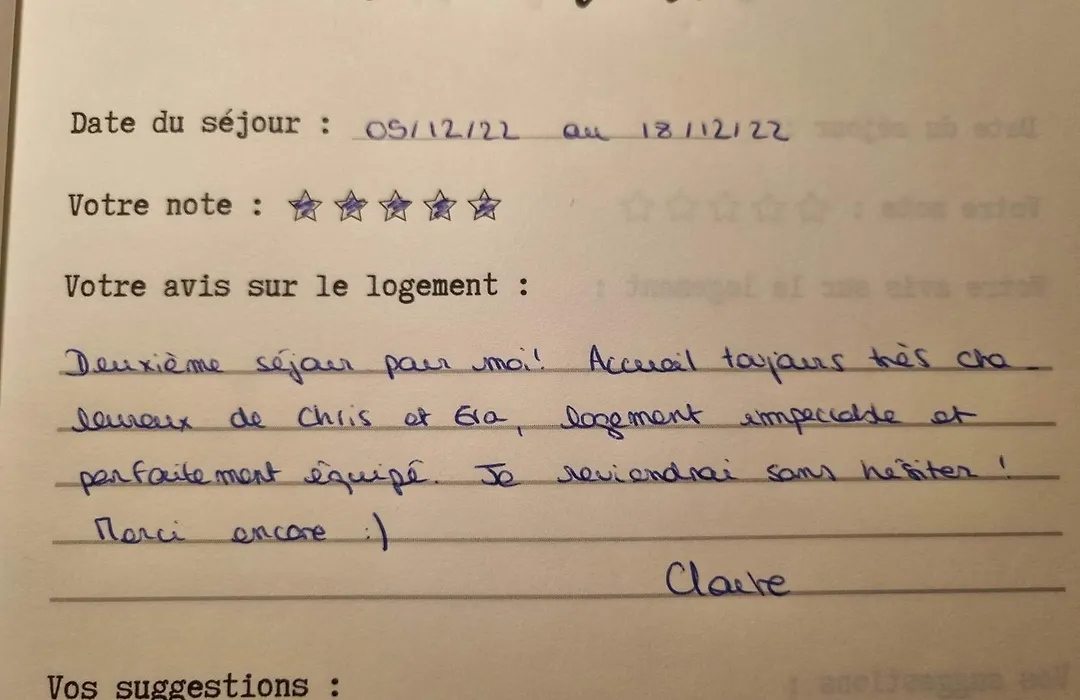 Date du séjour : 05/12/22 au 18/12/22
Votre note :
Votre avis sur le logement :
Deuxième séjour pour moi! Accueil toujours très cha-
leureux de Chris et Eva, logement impeccable et
parfaitement équipé. Je reviendrai sans hésiter !
Merci encore :)
Claire
Vos suggestions :